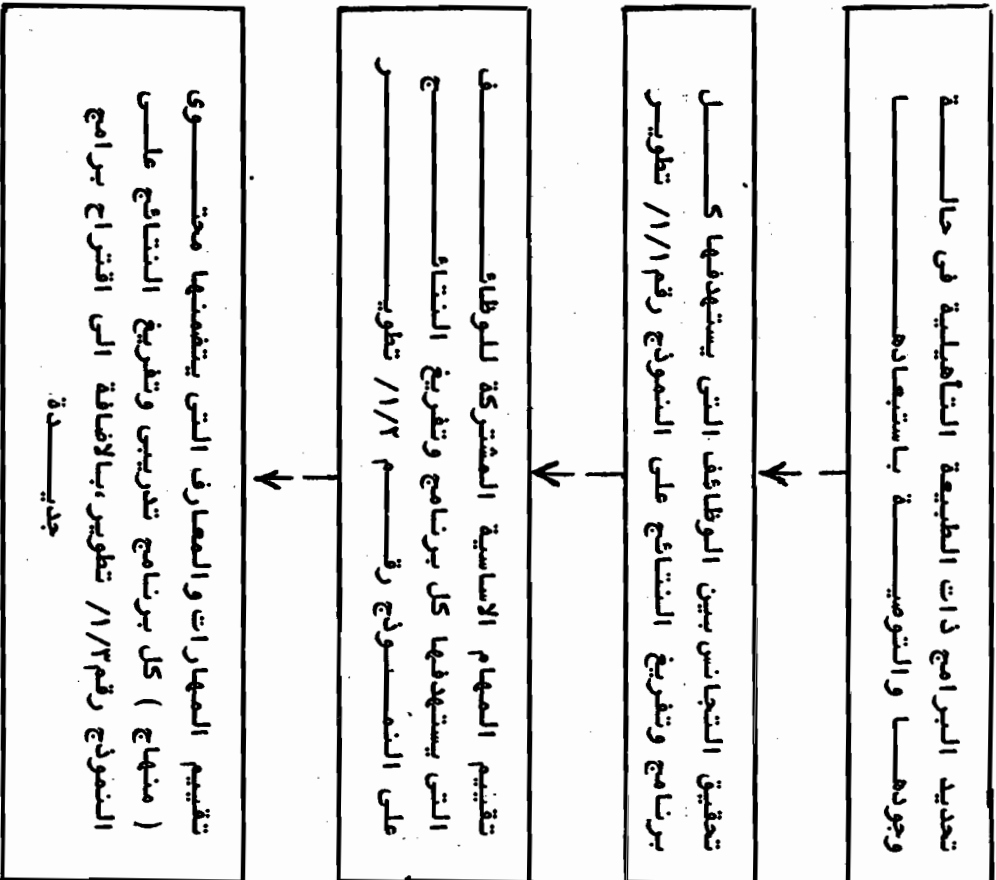 تحديد البرامج ذات الطبيعة التأهيلية فى حالة
وجودها والتوصية باستبعادها
تحقيق التجانس بين الوظائف التى يستهدفها كل
برنامج وتفريغ النتائج على النموذج رقم ١/١/ تطوير
تقييم المهام الاساسية المشتركة للوظائف
التى يستهدفها كل برنامج وتفريغ النتائج
على النموذج رقم ١/٢/ تطوير
تقييم المهارات والمعارف التى يتضمنها محتوى
( منهاج ) كل برنامج تدريبى وتفريغ النتائج على
النموذج رقم ١/٣/ تطوير، بالاضافة الى اقتراح برامج
جديدة